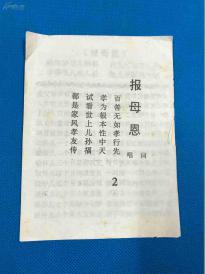 报母恩
唱词
百善无如孝行先
孝为根本性中天
试看世上儿孙福
都是家风孝友传
2